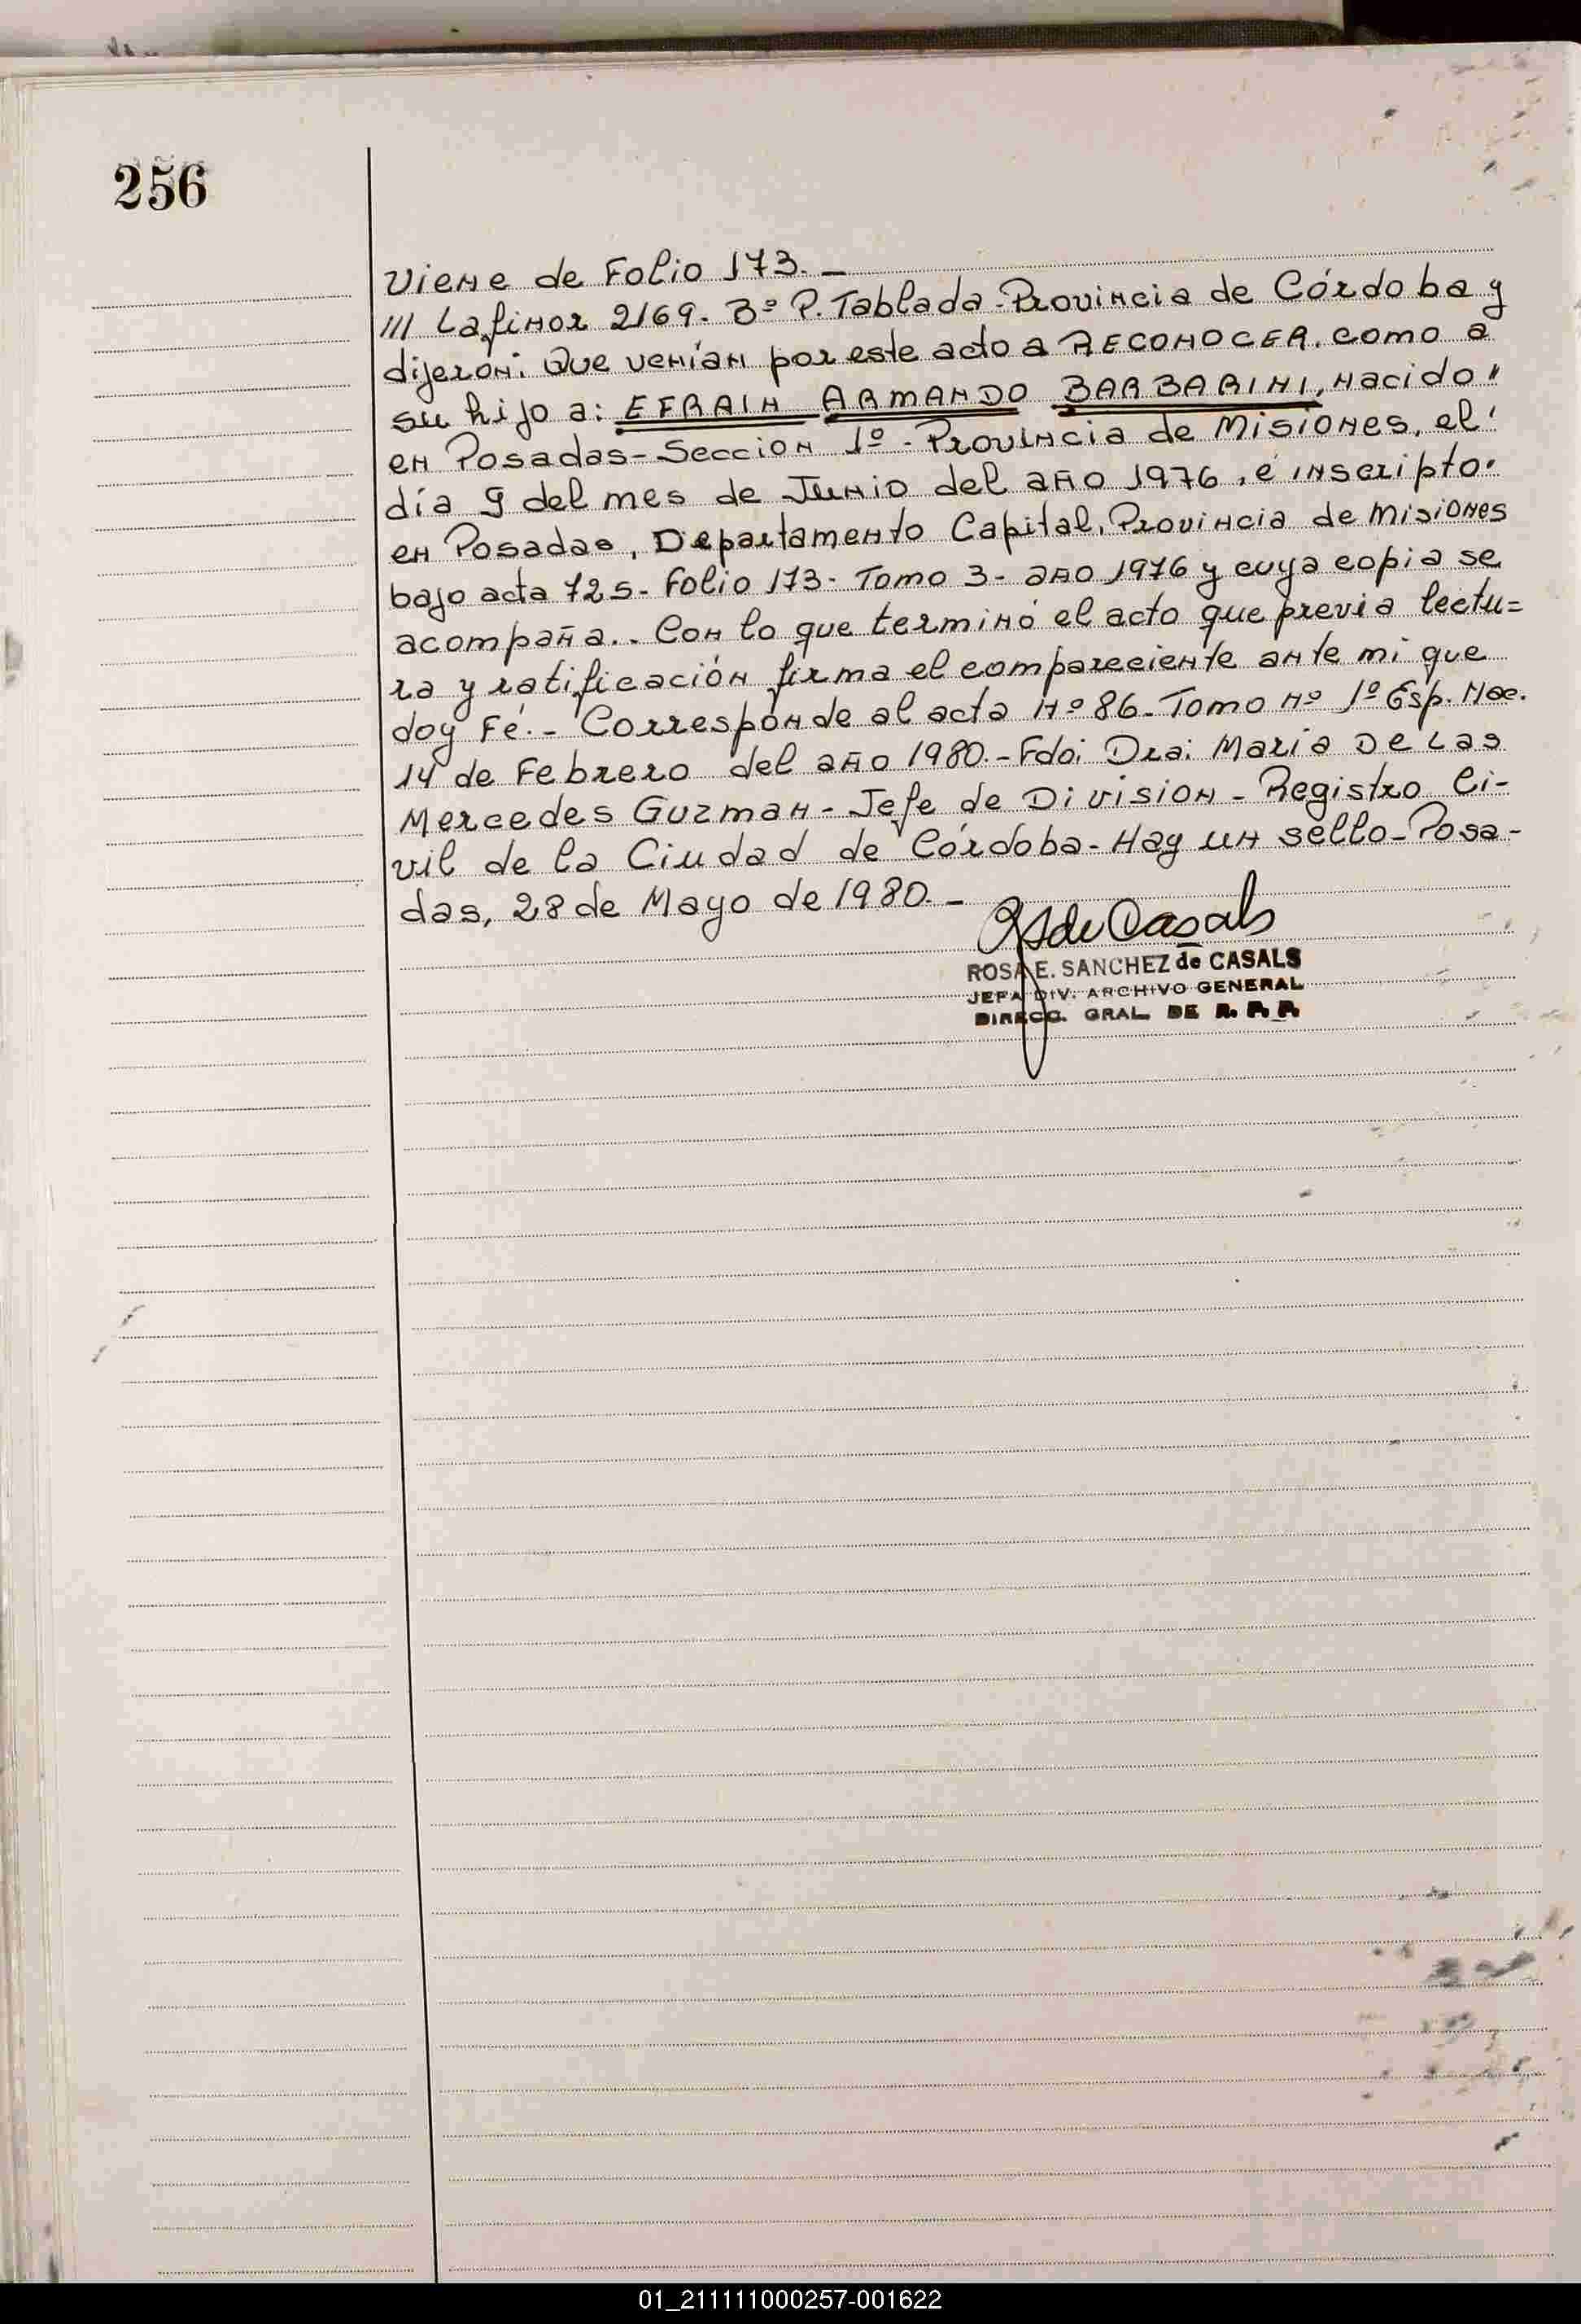 256
Viene de Folio 173.-
/// Lafinor 2169. Bº P. Tablada-Provincia de Córdoba y
dijeron: Que venían por este acto a RECONOCER, como a
su hijo a: EFRAIN ARMANDO BARBARINI, nacido"
en Posadas-Sección 1º-Provincia de Misiones, el'
día 9 del mes de Junio del año 1976, é inscripto.
en Posadas, Departamento Capital, Provincia de Misiones
bajo acta 725- Folio 173- Tomo 3- año 1976 y cuya copia se
acompaña.. Con lo que terminó el acto que previa lectu=
ra y ratificación firma el compareciente ante mi que
doy Fé.- Corresponde al acta Nº 86- Tomo Nº 1º Esp. Nac.
14 de Febrero del año 1980.- Fdo: Dra: María De Las
Mercedes Guzman - Jefe de Division - Registro Ci-
vil de la Ciudad de Córdoba- Hay un sello- Posa-
das, 28 de Mayo de 1980.-
RSde Casals
ROSA E. SANCHEZ de CASALS
JEFA DIV. ARCHIVO GENERAL
DIRECC. GRAL. DE R. P. P.
01_211111000257-001622